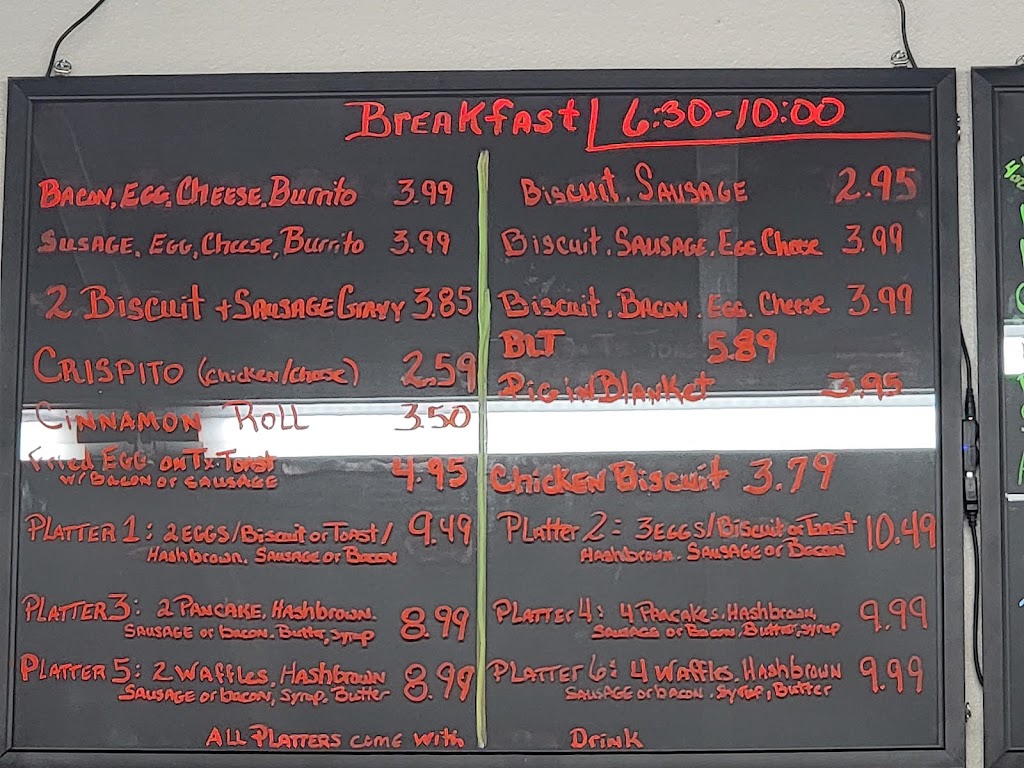 Breakfast | 6:30-10:00
Bacon, Egg, Cheese, Burrito 3.99
Susage, Egg, Cheese, Burrito 3.99
2 Biscuit + Sausage Gravy 3.85
Crispito (chicken/cheese) 2.59
Cinnamon Roll 3.50
Fried Egg on Tx. Toast 4.95
w/ Bacon or sausage
Platter 1: 2 eggs/Biscuit or Toast/ 9.49
Hashbrown. Sausage or Bacon
Platter 3: 2 Pancake, Hashbrown. 8.99
Sausage or bacon. Butter, syrup
Platter 5: 2 Waffles, Hashbrown 8.99
Sausage or bacon, Syrup, Butter
Biscuit, Sausage 2.95
Biscuit, Sausage, Egg, Cheese 3.99
Biscuit, Bacon, Egg, Cheese 3.99
BLT 5.89
Pig in Blanket 3.95
Chicken Biscuit 3.79
Platter 2: 3 eggs/Biscuit or Toast 10.49
Hashbrown. Sausage or Bacon
Platter 4: 4 Pancakes, Hashbrown, 9.99
Sausage or Bacon, Butter, syrup
Platter 6: 4 Waffles, Hashbrown 9.99
Sausage or bacon, Syrup, Butter
All Platters come with Drink